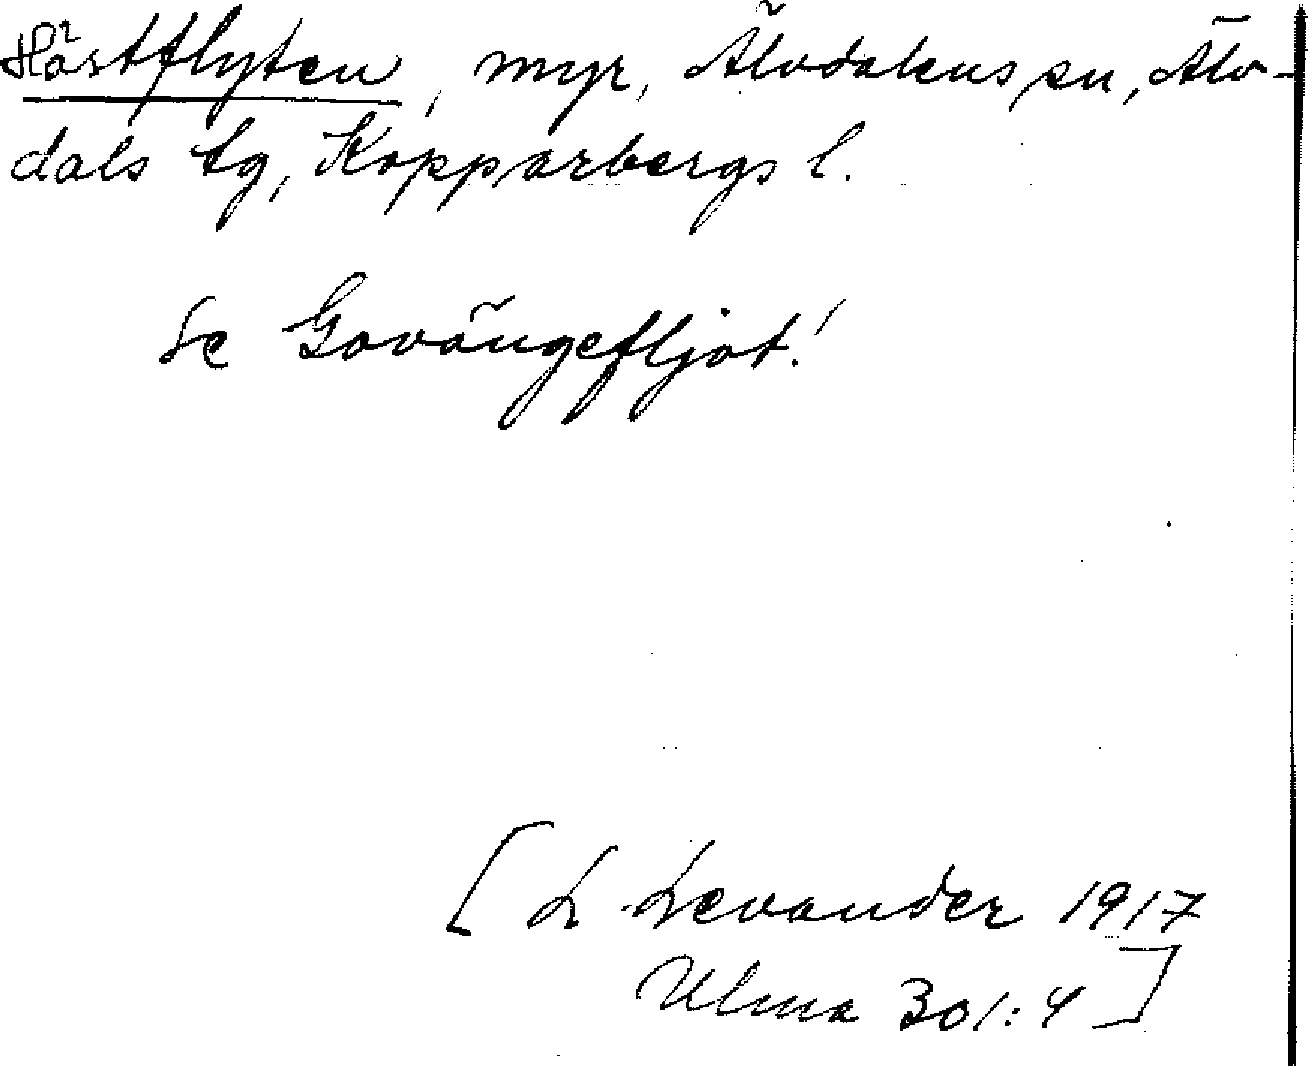 Höstflyten, myr, Älvdalens sn, Älv-
dals tg, Kopparbergs l.
Se Govängefljot!
[L Levander 1917
Ulma 301:4]